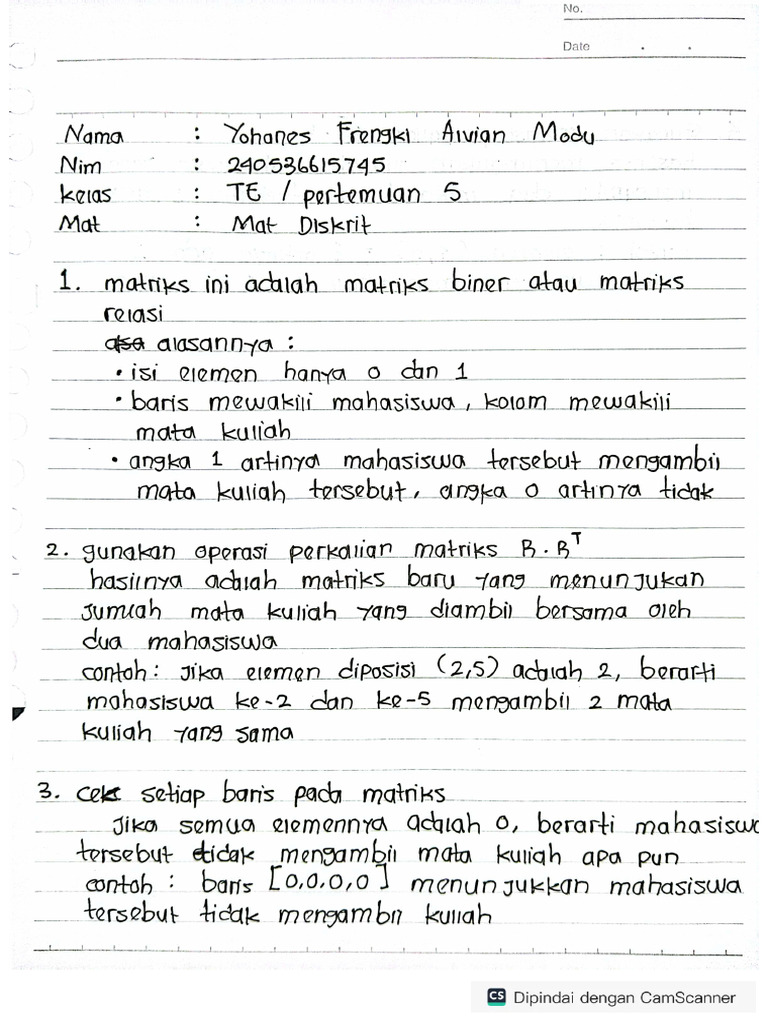 No.
Date . .
Nama : Yohanes Frengki Alvian Modu
Nim : 240536615745
kelas : TE / pertemuan 5
Mat : Mat Diskrit
1. matriks ini adalah matriks biner atau matriks
relasi
alasannya :
• isi elemen hanya 0 dan 1
• baris mewakili mahasiswa, kolom mewakili
mata kuliah
• angka 1 artinya mahasiswa tersebut mengambil
mata kuliah tersebut, angka 0 artinya tidak
2. gunakan operasi perkalian matriks B.Bᵀ
hasilnya adalah matriks baru yang menunjukan
jumlah mata kuliah yang diambil bersama oleh
dua mahasiswa
contoh : jika elemen diposisi (2,5) adalah 2, berarti
mahasiswa ke-2 dan ke-5 mengambil 2 mata
kuliah yang sama
3. cek setiap baris pada matriks
Jika semua elemennya adalah 0, berarti mahasiswa
tersebut tidak mengambil mata kuliah apa pun
contoh : baris [0,0,0,0] menunjukkan mahasiswa
tersebut tidak mengambil kuliah
CS Dipindai dengan CamScanner